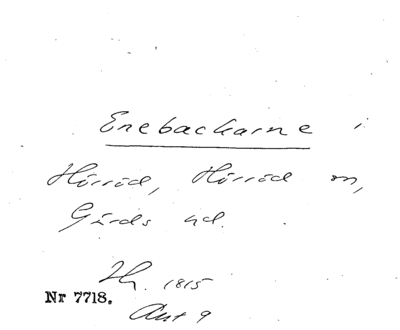 Enebackarne i
Hörröd, Hörröd sn,
Gärds hd.
Th. 1815
Nr 7718.
Akt 9